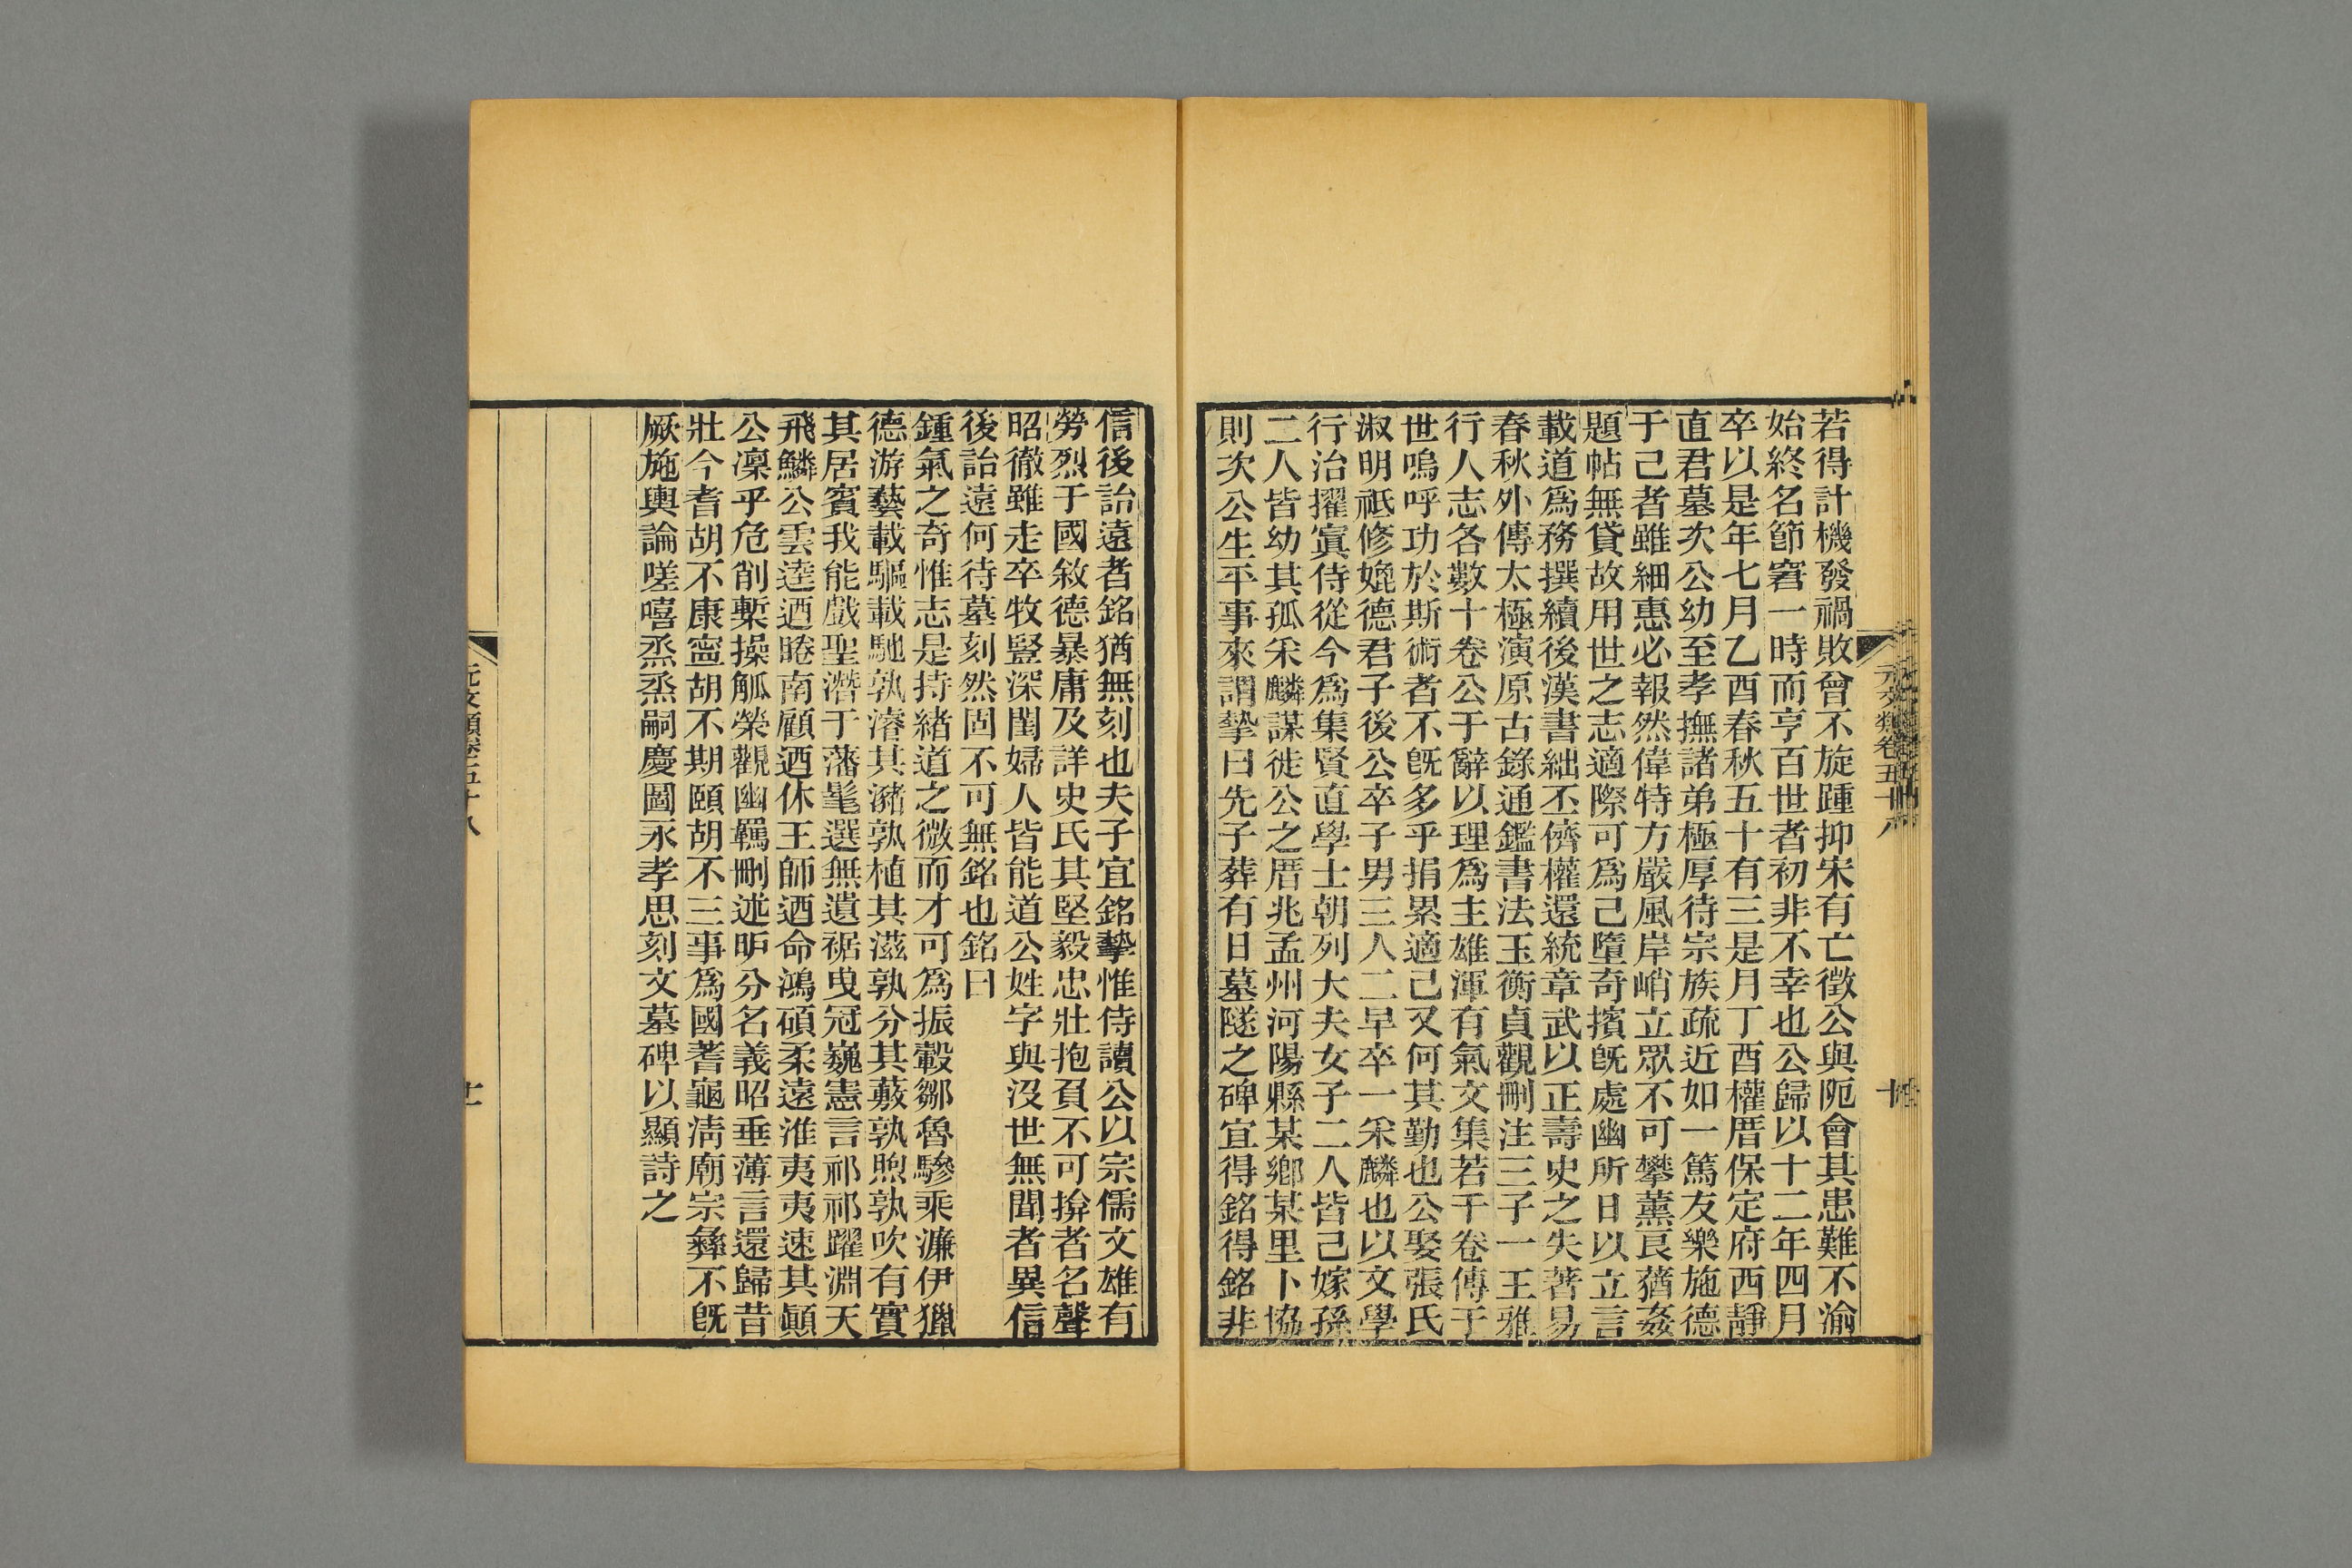 元文類卷五十八
十
若得計機發禍敗曾不旋踵抑宋有亡徵公與阨會其患難不渝
始終名節窘一時而亨百世者初非不幸也公歸以十二年四月
卒以是年七月乙酉春秋五十有三是月丁酉權厝保定府西靜
直君墓次公幼至孝撫諸弟極厚待宗族疏近如一篤友樂施德
于己者雖細惠必報然偉特方嚴風岸峭立眾不可攀薰良蕕姦
題帖無貸故用世之志適際可為己墮奇擯旣處幽所日以立言
載道爲務撰續後漢書絀丕儕權還統章武以正壽史之失著易
春秋外傳太極演原古錄通鑑書法玉衡貞觀刪注三子一王雅
行人志各數十卷公于辭以理爲主雄渾有氣文集若干卷傳于
世嗚呼功於斯術者不旣多乎捐累適己又何其勤也公娶張氏
淑明祗修媲德君子後公卒子男三人二早卒一采麟也以文學
行治擢寘侍從今爲集賢直學士朝列大夫女子二人皆己嫁孫
二人皆幼其孤采麟謀徙公之厝兆孟州河陽縣某鄉某里卜協
則次公生平事來謂摯曰先子葬有日墓隧之碑宜得銘得銘非
信後詒遠者銘猶無刻也夫子宜銘摯惟侍讀公以宗儒文雄有
勞烈于國敘德暴庸及詳史氏其堅毅忠壯抱頁不可揜者名聲
昭徹雖走卒牧豎深閨婦人皆能道公姓字與沒世無聞者異信
後詒遠何待墓刻然固不可無銘也銘曰
鍾氣之奇惟志是持緒道之微而才可爲振轂鄒魯驂乘濂伊獵
德游藝載驅載馳孰濬其瀦孰植其滋孰分其蔽孰煦孰吹有實
其居賓我能戲聖潛于藩髦選無遺裾曳冠巍憲言祁祁躍淵天
飛鱗公雲逵迺睠南顧迺休王師迺命鴻碩柔遠淮夷夷速其顚
公凜乎危削槧操觚榮觀幽羈刪述昈分名義昭垂薄言還歸昔
壯今耆胡不康寧胡不期頤胡不三事爲國蓍龜淸廟宗彝不旣
厥施輿論嗟嘻烝烝嗣慶圖永孝思刻文墓碑以顯詩之
元文類卷五十八
十一